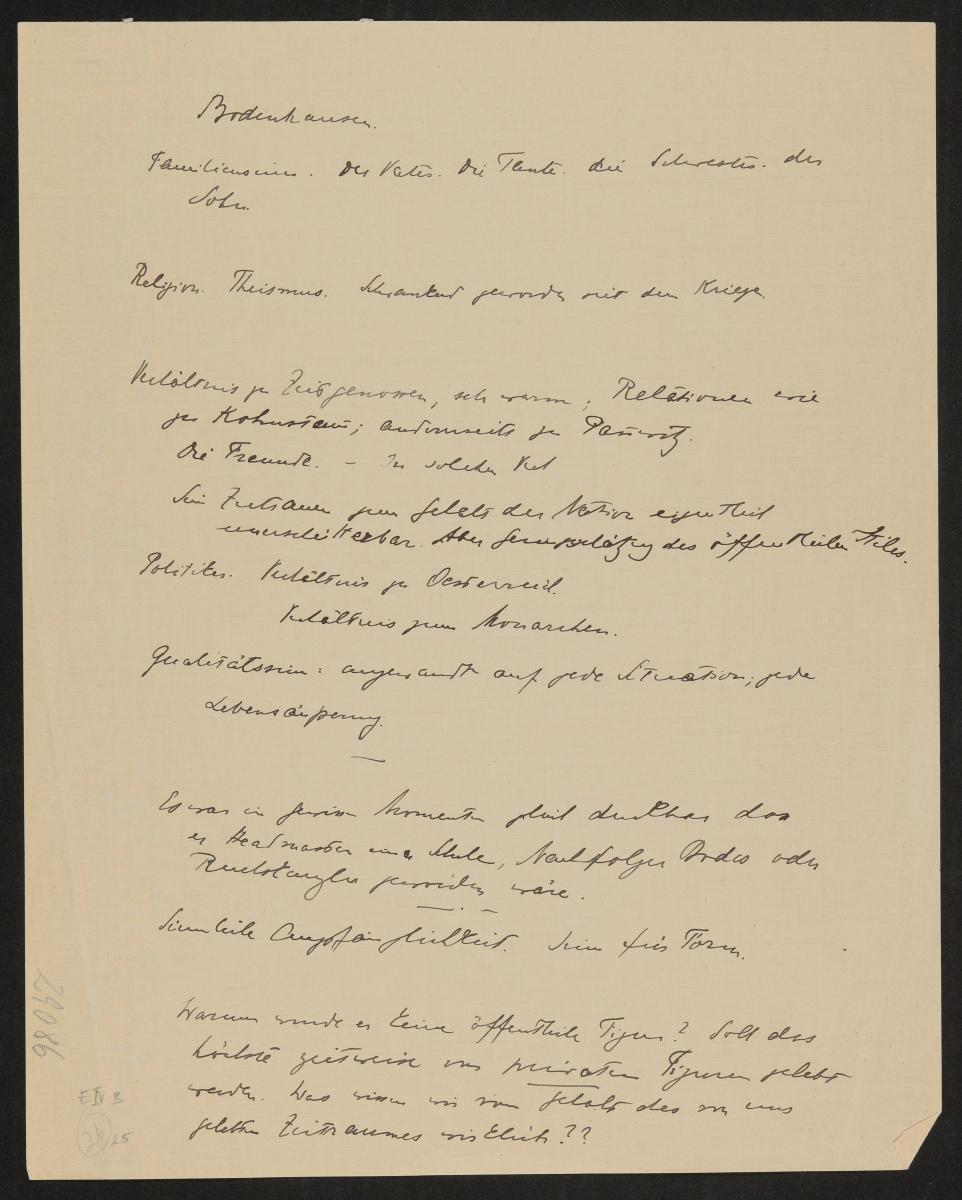 Bodenhausen.
Familiensinn. Der Vater. Die Tante. die Schwester. der
Sohn.
Religion. Theismus. Schwankend geworden mit dem Kriege.
Verhältnis zu Zeitgenossen, sehr warm; Relationen wie
zu Kohnstamm; anderseits zu Pannwitz.
Die Freunde. – In solcher
Sein Zutrauen zum Gehalt der Nation eigentlich
unerschütterbar. Aber des öffentlichen Stiles.
Politiker. Verhältnis zu Oesterreich.
Verhältnis zum Monarchen.
Qualitätssinn: angewandt auf jede Situation; jede
Lebensäußerung.
—
Es war in gewissen Momenten gleich denkbar dass
er Headmaster einer Schule, Nachfolger Bodes oder
Reichskanzler geworden wäre.
— . –
Sinnliche Empfänglichkeit. Sinn für Form.
Warum wurde er keine öffentliche Figur? Soll das
höchste zeitweise von privaten Figuren gelebt
werden. Was wissen wir vom Gehalt des von uns
gelebten Zeitraumes wirklich??
29086
E IV B
25